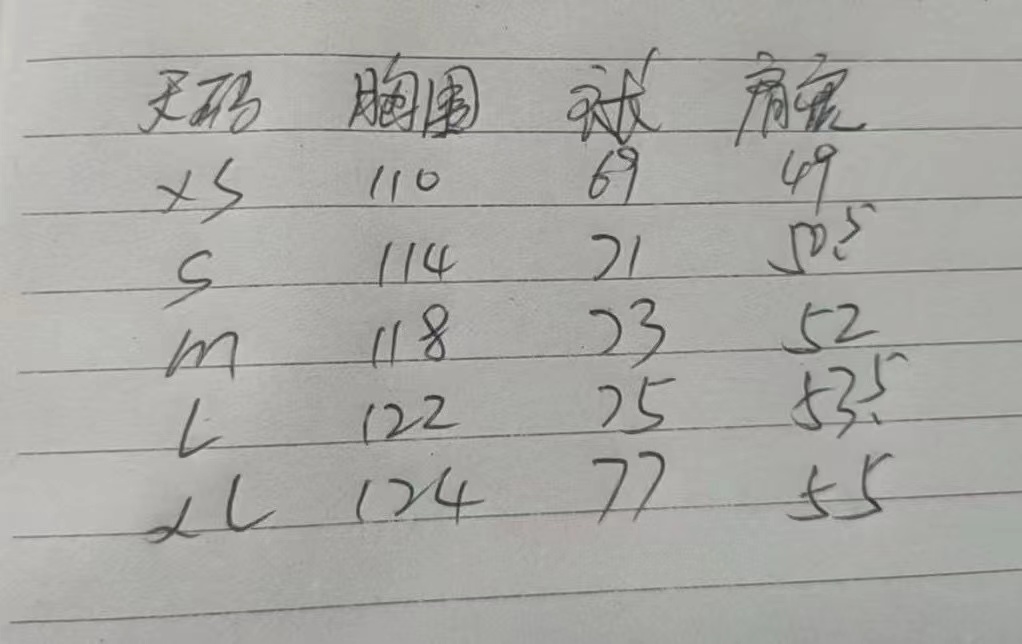 尺码 胸围 衣长 肩宽
XS 110 69 49
S 114 71 50.5
M 118 73 52
L 122 75 53.5
XL 124 77 55